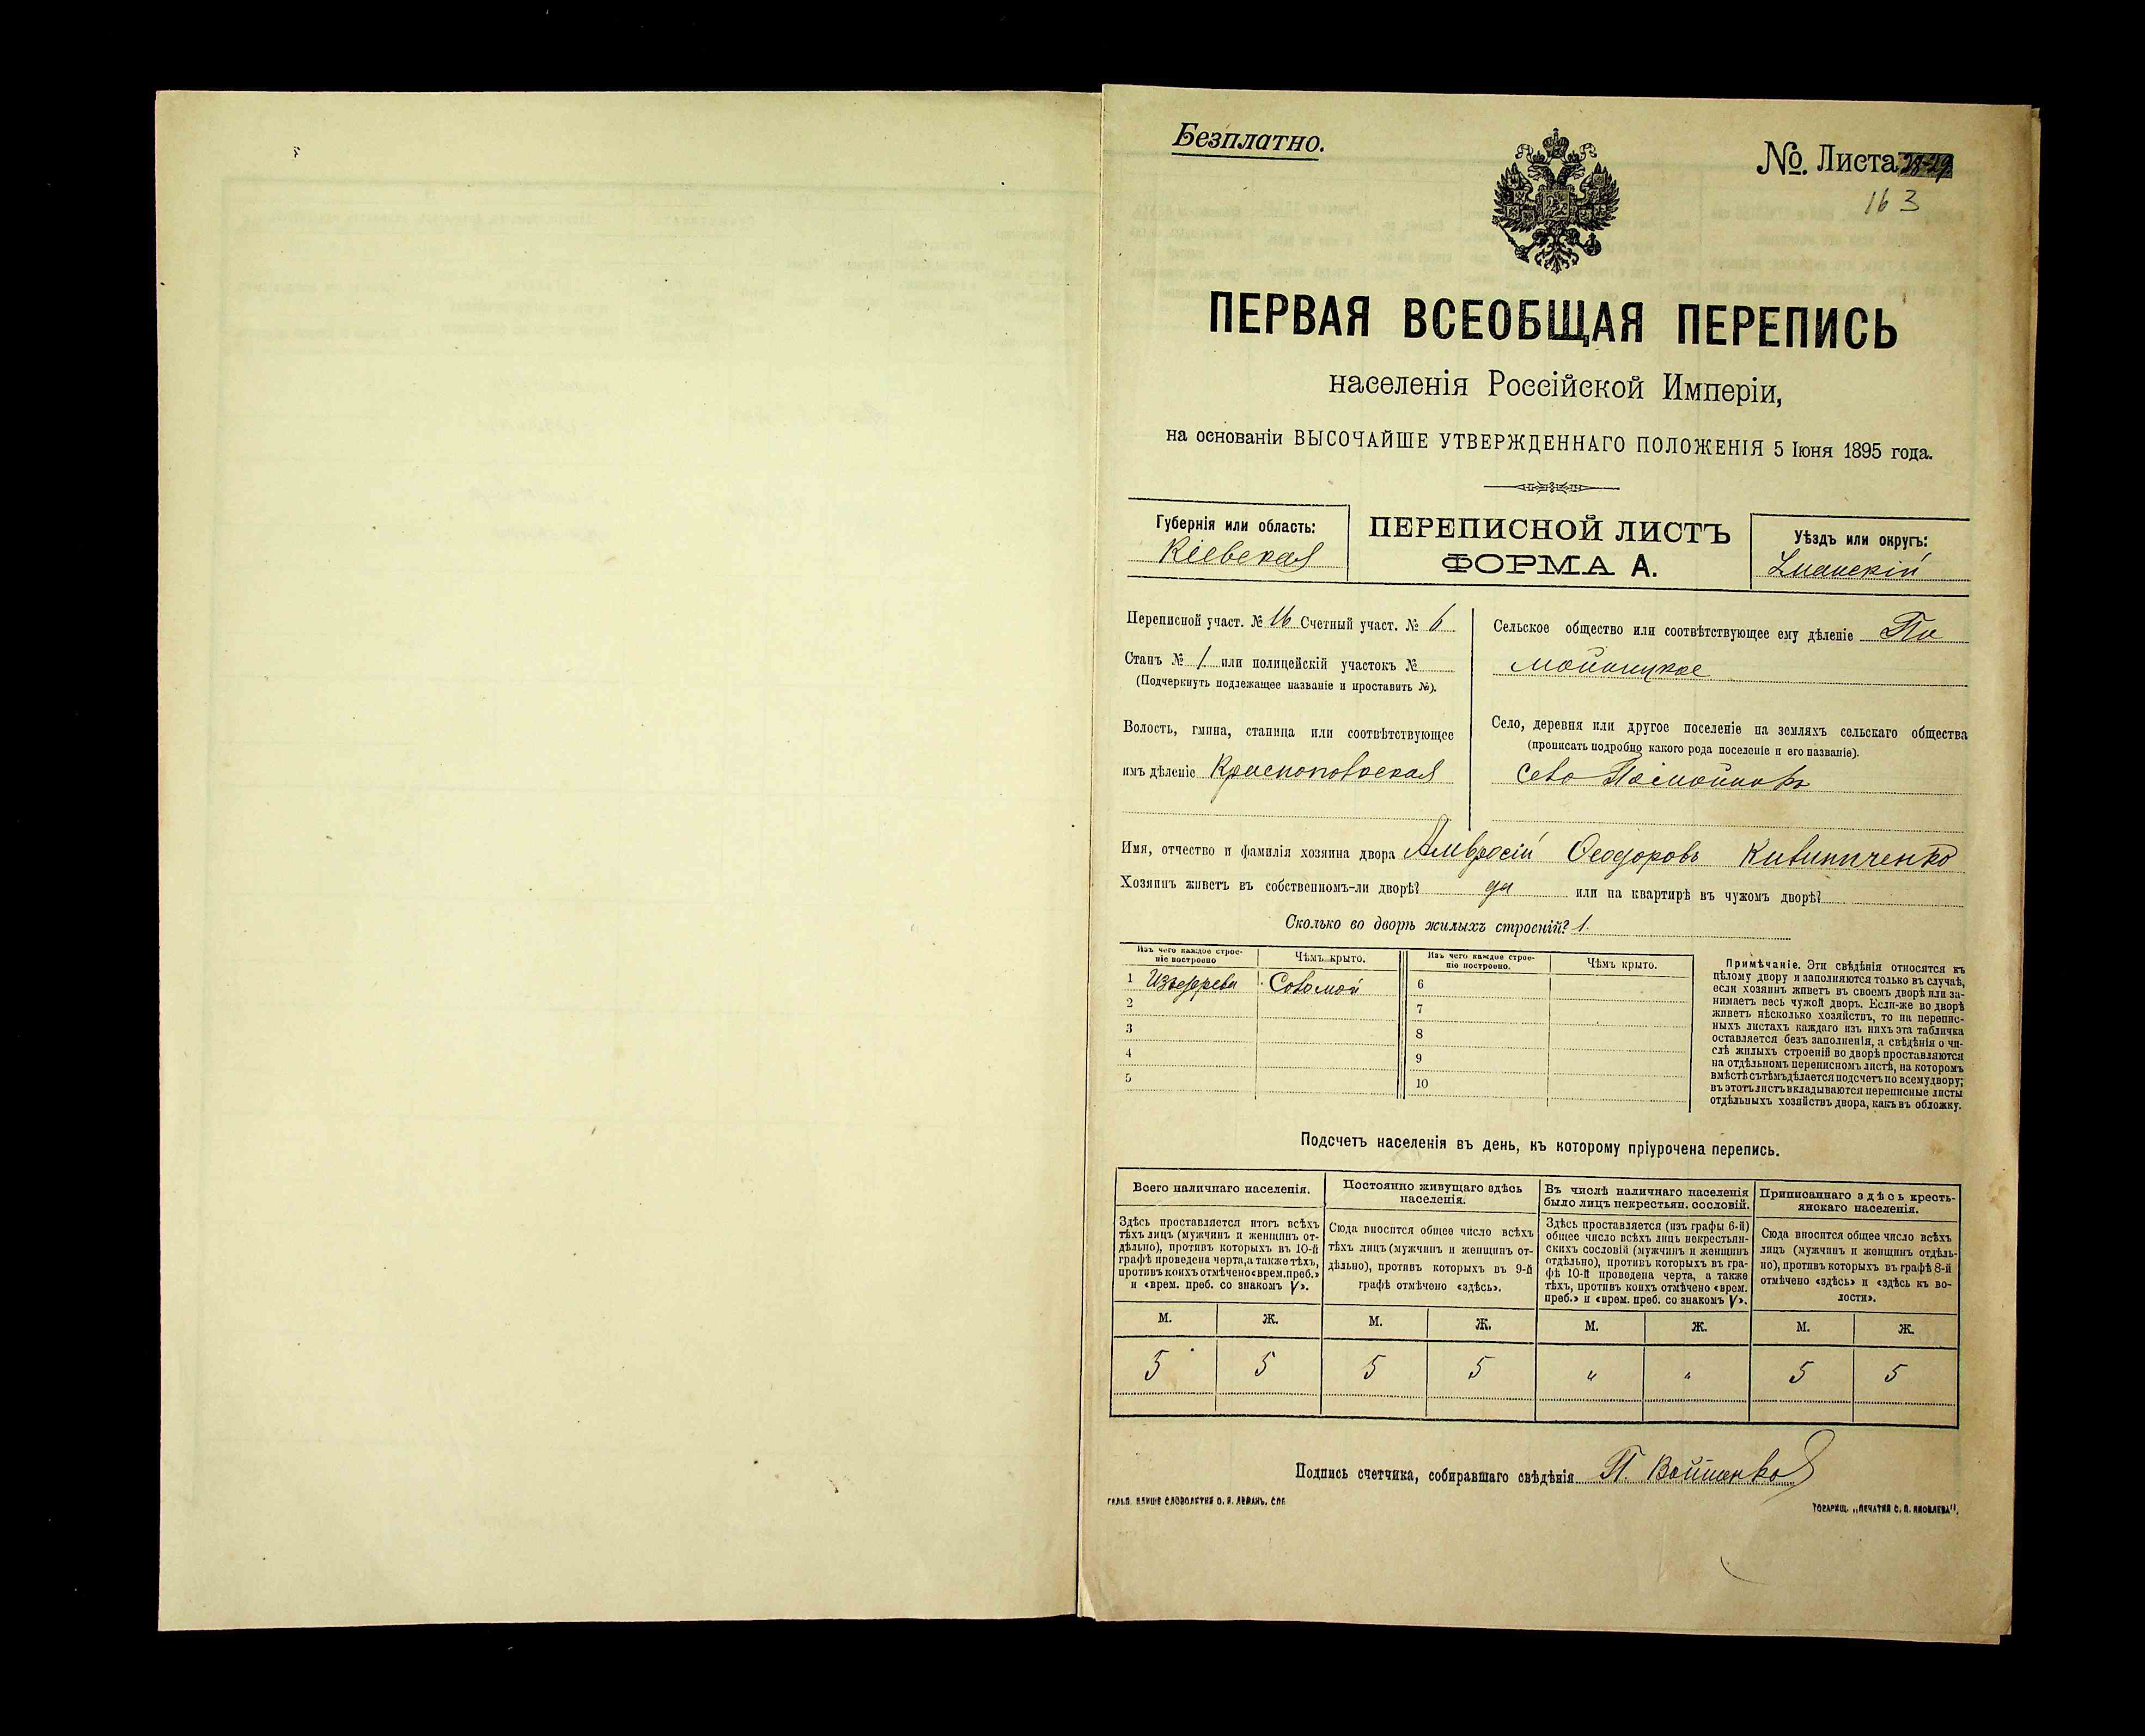 Безплатно.
№. Листа 28-29
163
ПЕРВАЯ ВСЕОБЩАЯ ПЕРЕПИСЬ
населенія Россійской Имперіи,
на основаніи ВЫСОЧАЙШЕ УТВЕРЖДЕННАГО ПОЛОЖЕНІЯ 5 Іюня 1895 года.
Губернія или область:
Кіевская
ПЕРЕПИСНОЙ ЛИСТЪ
ФОРМА А.
Уѣздъ или округъ:
Уманскій
Переписной участ. № 16 Счетный участ. № 6
Станъ № 1 или полицейскій участокъ №
(Подчеркнуть подлежащее названіе и проставить №).
Волость, гмина, станица или соотвѣтствующее
имъ дѣленіе Краснопольская
Сельское общество или соотвѣтствующее ему дѣленіе По
мойницкое
Село, деревня или другое поселеніе на земляхъ сельскаго общества
(прописать подробно какого рода поселеніе и его названіе).
село Помойникъ
Имя, отчество и фамилія хозяина двора Амвросій Ѳеодоровъ Килиниченко
Хозяинъ живетъ въ собственномъ-ли дворѣ? да или на квартирѣ въ чужомъ дворѣ?
Сколько во дворѣ жилыхъ строеній? 1.
Изъ чего каждое строе-
ніе построено
Чѣмъ крыто.
Изъ чего каждое строе-
ніе построено.
Чѣмъ крыто.
1 Из дерева Соломой
2
3
4
5
6
7
8
9
10
Примѣчаніе. Эти свѣдѣнія относятся къ
цѣлому двору и заполняются только въ случаѣ,
если хозяинъ живетъ въ своемъ дворѣ или за-
нимаетъ весь чужой дворъ. Если-же во дворѣ
живетъ нѣсколько хозяйствъ, то на перепис-
ныхъ листахъ каждаго изъ нихъ эта табличка
оставляется безъ заполненія, а свѣдѣнія о чи-
слѣ жилыхъ строеній во дворѣ проставляются
на отдѣльномъ переписномъ листѣ, на которомъ
вмѣстѣ съ тѣмъ дѣлается подсчетъ по всему двору;
въ этотъ листъ вкладываются переписные листы
отдѣльныхъ хозяйствъ двора, какъ въ обложку.
Подсчетъ населенія въ день, къ которому пріурочена перепись.
Всего наличнаго населенія.
Здѣсь проставляется итогъ всѣхъ
тѣхъ лицъ (мужчинъ и женщинъ от-
дѣльно), противъ которыхъ въ 10-й
графѣ проведена черта, а также тѣхъ,
противъ коихъ отмѣчено «врем. преб.»
и «врем. преб. со знакомъ V».
Постоянно живущаго здѣсь
населенія.
Сюда вносится общее число всѣхъ
тѣхъ лицъ (мужчинъ и женщинъ от-
дѣльно), противъ которыхъ въ 9-й
графѣ отмѣчено «здѣсь».
Въ числѣ наличнаго населенія
было лицъ некрестьян. сословій.
Здѣсь проставляется (изъ графы 6-й)
общее число всѣхъ лицъ некрестьян-
скихъ сословій (мужчинъ и женщинъ
отдѣльно), противъ которыхъ въ гра-
фѣ 10-й проведена черта, а также
тѣхъ, противъ коихъ отмѣчено «врем.
преб.» и «врем. преб. со знакомъ V».
Приписаннаго здѣсь кресть-
янскаго населенія.
Сюда вносится общее число всѣхъ
лицъ (мужчинъ и женщинъ отдѣль-
но), противъ которыхъ въ графѣ 8-й
отмѣчено «здѣсь» и «здѣсь къ во-
лости».
М. Ж. М. Ж. М. Ж. М. Ж.
5 5 5 5 " " 5 5
Подпись счетчика, собиравшаго свѣдѣнія П. Войтенко
ГАЛЬП. КЛИШЕ СЛОВОЛИТНИ О. И. ЛЕМАНЪ. СПБ
ТОВАРИЩ. „ПЕЧАТНЯ С. П. ЯКОВЛЕВА“.